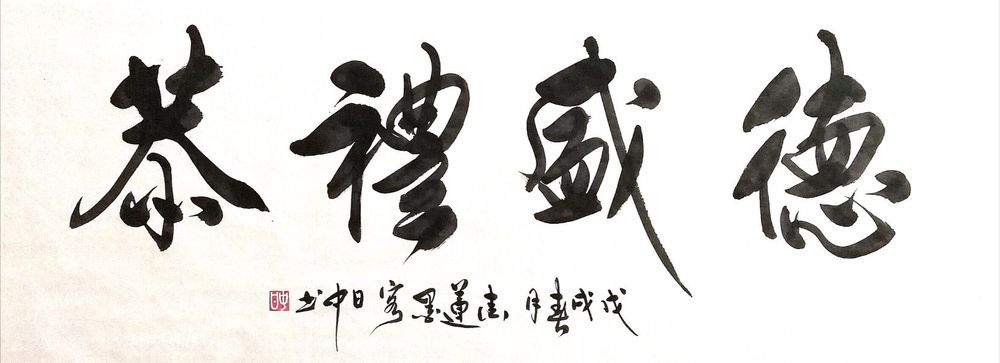 德盛禮恭
戊戌春月 佳蓮墨客 日中书